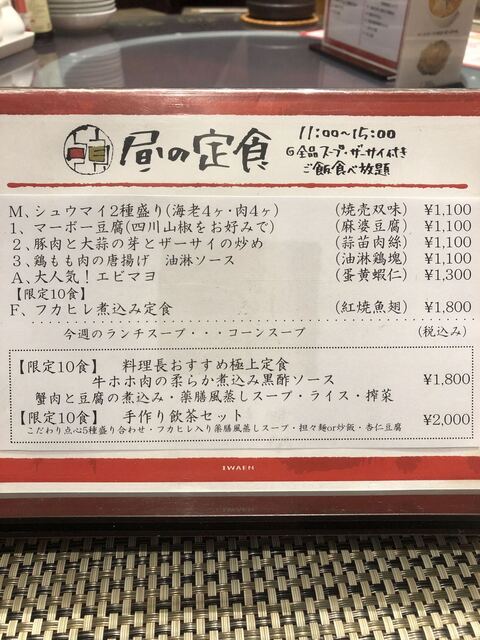 昼の定食
11:00〜15:00
全品スープ・ザーサイ付き
ご飯食べ放題
M、シュウマイ2種盛り(海老4ヶ・肉4ヶ) (焼売双味) ¥1,100
1、マーボー豆腐(四川山椒をお好みで) (麻婆豆腐) ¥1,100
2、豚肉と大蒜の芽とザーサイの炒め (蒜苗肉絲) ¥1,100
3、鶏もも肉の唐揚げ 油淋ソース (油淋鶏塊) ¥1,100
A、大人気!エビマヨ (蛋黄蝦仁) ¥1,300
【限定10食】
F、フカヒレ煮込み定食 (紅焼魚翅) ¥1,800
今週のランチスープ・・・コーンスープ (税込み)
【限定10食】 料理長おすすめ極上定食
牛ホホ肉の柔らか煮込み黒酢ソース ¥1,800
蟹肉と豆腐の煮込み・薬膳風蒸しスープ・ライス・搾菜
【限定10食】 手作り飲茶セット ¥2,000
こだわり点心5種盛り合わせ・フカヒレ入り薬膳風蒸しスープ・担々麺or炒飯・杏仁豆腐
IWAEN